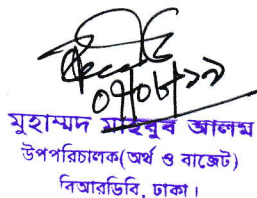 ০৭/০৮/১৯
মুহাম্মদ মাহবুব আলম
উপপরিচালক(অর্থ ও বাজেট)
বিআরডিবি, ঢাকা।